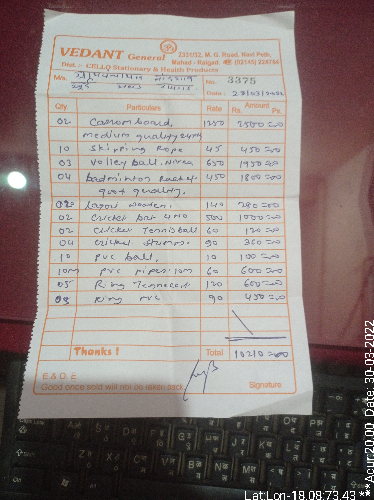 VEDANT General
2331/32, M. G. Road, Navi Peth,
Mahad - Raigad ☎ (02145) 224764
CELLO Stationary & Health Products
M/s.
No. 3375
Date :
Qty. Particulars Rate Amount Rs. Ps.
02 Carromboard, 1250 2500=00
medium quality
10 Skipping Rope 45 450=00
03 Volley ball. Nivea 650 1950=00
04 badminton Racket 450 1800=00
good quality.
02 wooden. 140 280=00
02 Cricket bat 4No 500 1000=00
02 Cricket Tennisball 60 120=00
04 Cricket Stumps. 90 360=00
10 PVC ball. 10 100=00
10m PVC pipes 10m 60 600=00
05 Ring 120 600=00
Ring PVC 90 450=00
Thanks ! Total 10210=00
E. & O. E.
Good once sold will not be taken back
Signature
Lat:Lon-18.08:73.43 ** Acur:20.00 Date: 30-03-2022